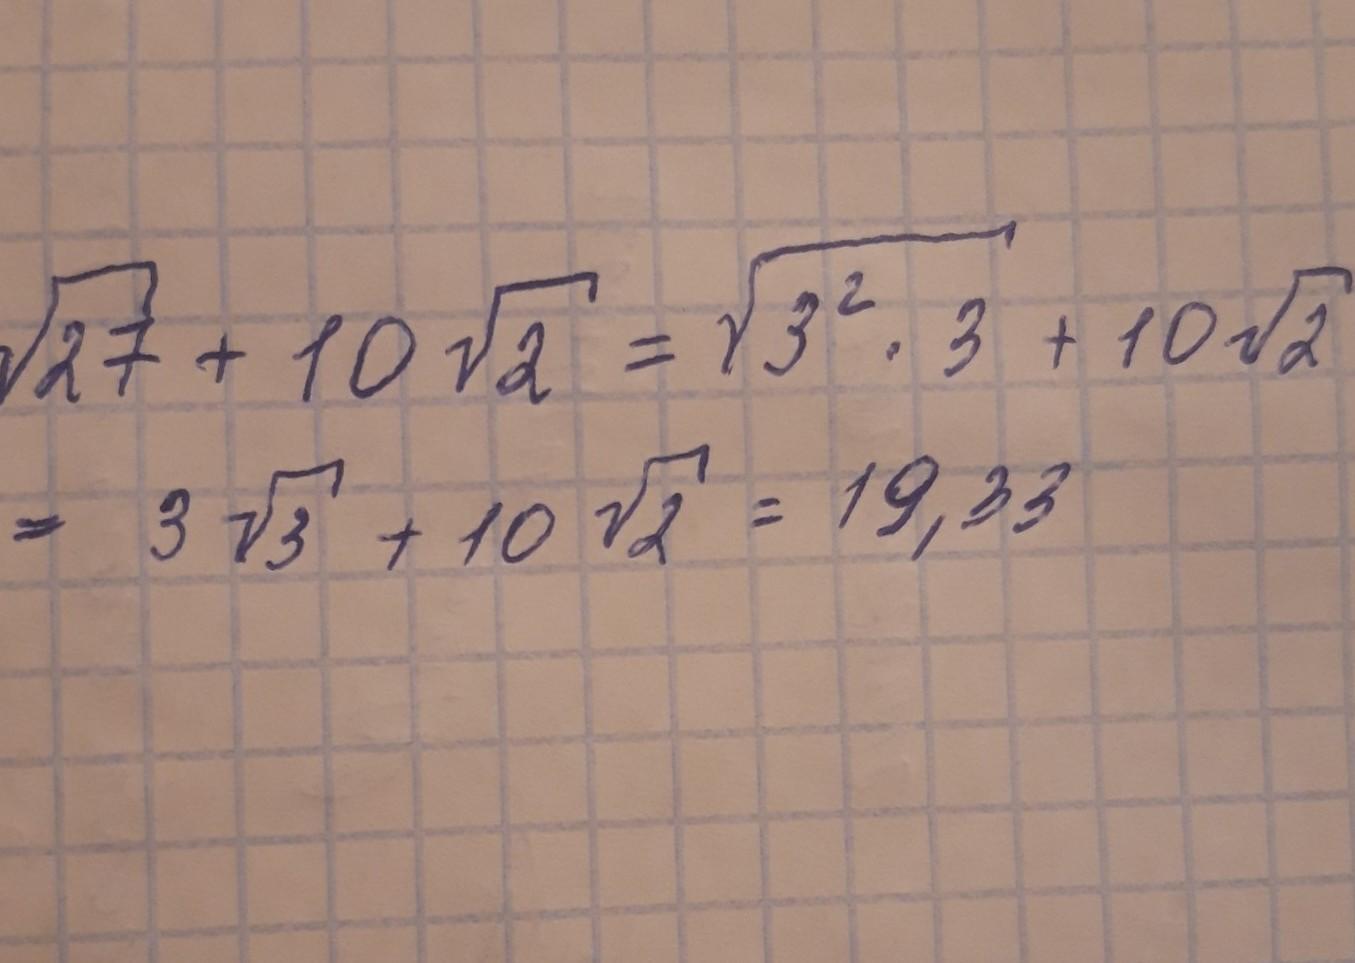 √27 + 10√2 = √3² · 3 + 10√2
= 3√3 + 10√2 = 19,33